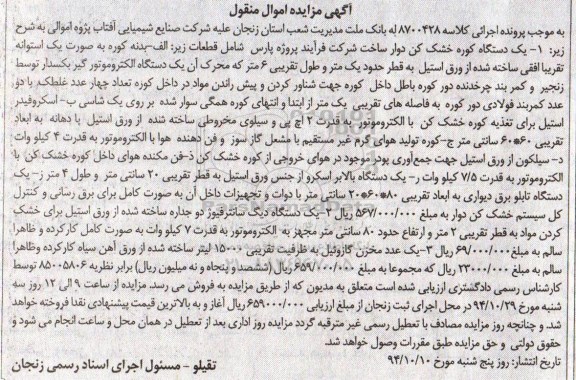 آگهی مزایده اموال منقول
به موجب پرونده اجرائی کلاسه ۸۷۰۰۴۲۸ له بانک ملت مدیریت شعب استان زنجان علیه شرکت صنایع شیمیایی آفتاب پژوه اموالی به شرح
زیر: ۱- یک دستگاه کوره خشک کن دوار ساخت شرکت فرآیند پروژه پارس شامل قطعات زیر: الف-بدنه کوره به صورت یک استوانه
تقریبا افقی ساخته شده از ورق استیل به قطر حدود یک متر و طول تقریبی ۶ متر که محرک آن یک دستگاه الکتروموتور گیر بکسدار توسط
زنجیر و کمر بند چرخدنده دور کوره باطل داخل کوره جهت شناور کردن و پیش راندن مواد در داخل کوزه تعداد چهار عدد غلطک با دو
عدد کمربند فولادی دور کوره به فاصله های تقریبی یک متر از ابتدا و انتهای کوره همگی سوار شده بر روی یک شاسی ب- اسکروفیدر
استیل برای تغذیه کوره خشک کن با الکتروموتور به قدرت ۲ اچ پی و سیلوی مخروطی ساخته شده از ورق استیل با دهانه به ابعاد
تقریبی ۶۰*۶۰ سانتی متر ج-کوره تولید هوای گرم غیر مستقیم با مشعل گاز سوز و فن دهنده هوا با الکتروموتور به قدرت ۴ کیلو وات
د- سیلکون از ورق استیل جهت جمع آوری پودر موجود در هوای خروجی از کوره خشک کن ذ-فن مکنده هوای داخل کوره خشک کن با
الکتروموتور به قدرت ۷/۵ کیلو وات ر- یک دستگاه بالابر اسکرو از جنس ورق استیل به قطر تقریبی ۲۰ سانتی متر و طول ۴ متر ز- یک
دستگاه تابلو برق دیواری به ابعاد تقریبی ۸۰*۶۰*۲۰ سانتی متر با دوات و تجهیزات داخل آن به صورت کامل برای برق رسانی و کنترل
کل سیستم خشک کن دوار به مبلغ ۵۶۷/۰۰۰/۰۰۰ ریال ۲- یک دستگاه دیگ سانترفیوژ دو جداره ساخته شده از ورق استیل برای خشک
کردن مواد به قطر تقریبی ۲ متر و ارتفاع حدود ۸۰ سانتی متر مجهز به الکتروموتور به قدرت ۷ کیلو وات به صورت کامل کارکرده و ظاهرا
سالم به مبلغ ۶۹/۰۰۰/۰۰۰ ریال ۳-یک عدد مخزن گازوئیل به ظرفیت تقریبی ۱۵۰۰۰ لیتر ساخته شده از ورق آهن سیاه کارکرده وظاهرا
سالم به مبلغ ۲۳۰۰۰/۰۰۰ ریال که مجموعا به مبلغ ۶۵۹/۰۰۰/۰۰۰ ریال (ششصد و پنجاه و نه میلیون ریال) برابر نظریه ۸۵۰۰۵۸۰۶ توسط
کارشناس رسمی دادگستری ارزیابی شده است متعلق به مدیون که از طریق مزایده به فروش می رسد. مزایده از ساعت ۹ الی ۱۲ روز سه
شنبه مورخ ۹۴/۱۰/۲۹ در محل اجرای ثبت زنجان از مبلغ ارزیابی ۶۵۹۰۰۰/۰۰۰ ریال آغاز و به بالاترین قیمت پیشنهادی نقدا فروخته خواهد
شد و چنانچه روز مزایده مصادف با تعطیل رسمی غیر مترقبه گردد مزایده روز اداری بعد از تعطیل در همان محل و ساعت انجام می شود و
حقوق دولتی و حق مزایده طبق مقررات وصول خواهد شد.
تاریخ انتشار: روز پنج شنبه مورخ ۹۴/۱۰/۱۰
تقیلو - مسئول اجرای اسناد رسمی زنجان